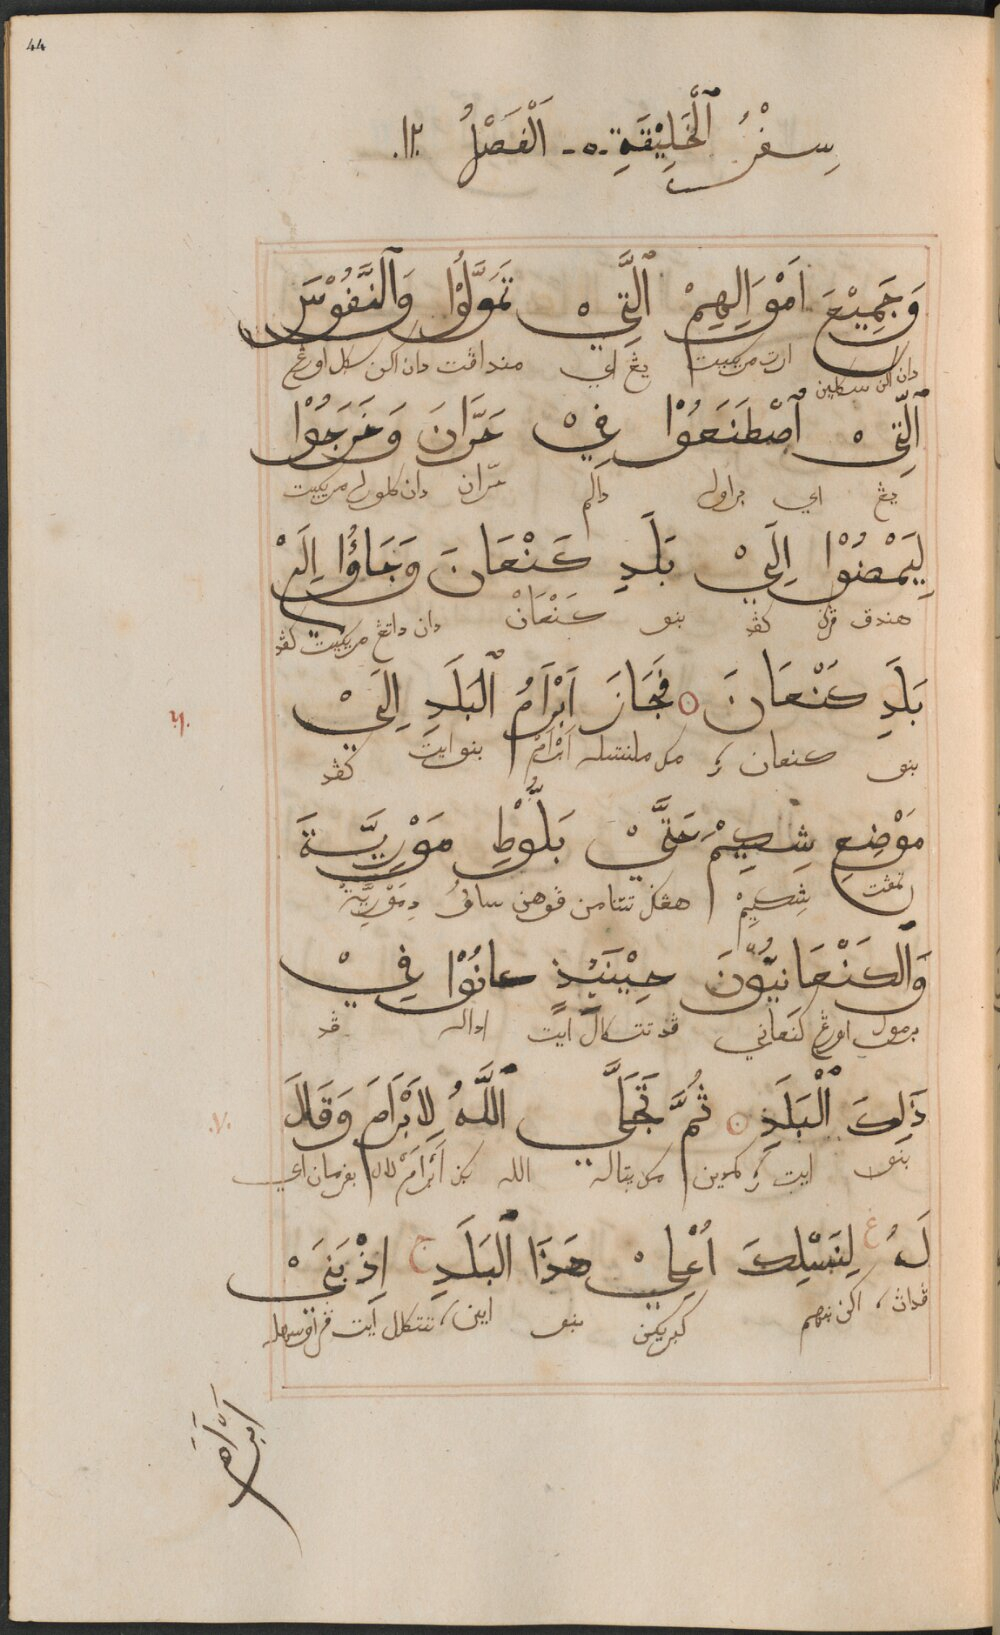 44
سِفْرُ ٱلْخَلِيْقَةِ ٥ اَلْفَصْلُ ١٢
وَجَمِيْعَ اَمْوَالِهِمْ ٱلَّتِيْ تَمَوَّلُوْا وَٱلنُّفُوْسَ
دان اكن سكلين ارت مريكييت يڠ اي منداڤت دان اكن سكل اورڠ
ٱلَّتِيْ ٱصْطَنَعُوْا فِيْ حَرَّانَ وَخَرَجُوْا
يڠ اي براوله دالم حرّان دان كلور له مريكييت
لِيَمْضُوْا اِلَيْ بَلَدِ كَنْعَانَ وَجَاؤُا اِلَيْ
هندق ڤرݢ كڤد بنو كَنْعَانْ دان داتڠ مريكييت كڤد
بَلَدِ كَنْعَانَ فَجَازَ اَبْرَامُ ٱلْبَلَدِ اِلَيْ
٦
بنو كنعان مك ملنتسله اَبْرَامْ بنو ايت كڤد
مَوْضِعِ شِكِيْمَ حَتَّيْ بَلُّوْطِ مَوْرِيَّةَ
تمڤت شِكِيْمْ هڠݢ تتامن ڤوهن دمَوْرِيَّةْ
وَٱلْكَنْعَانِيُّوْنَ حِيْنَئِذٍ كَانُوْا فِيْ
برمول اورڠ كنعاني ڤد تتكال ايت اداله ڤد
ذَلِكَ ٱلْبَلَدِ ثُمَّ تَجَلَّي ٱللَّهُ لِاَبْرَامَ وَقَالَ
٧
بنو ايت كمدين مك پتاله الله اَبْرَامْ لالو بفرمان اي
لَهُ لِنَسْلِكَ اُعْطِيْ هَذَا ٱلْبَلَدِ اِذْ بَنَيْ
ڤداڽ اكن بنيهم كبريكن بنو اين تتكال ايت